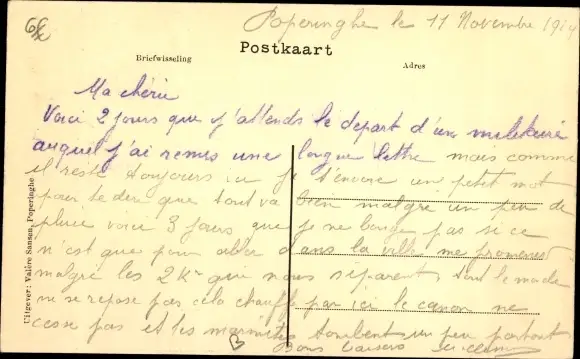 66
Poperinghe le 11 Novembre 1914
Postkaart
Briefwisseling
Adres
Ma chérie
Voici 2 jours que j'attends le départ d'un militaire
auquel j'ai remis une longue lettre mais comme
il reste toujours ici je t'envoie un petit mot
pour te dire que tout va bien malgré un peu de
pluie voici 3 jours que je ne bouge pas si ce
n'est que pour aller dans la ville me promener
malgré les 2 Km qui nous séparent tout le monde
ne se repose pas cela chauffe par ici le canon ne
cesse pas et les marmites tombent un peu partout
Bons baisers
Uitgever: Valère Sansen, Poperinghe